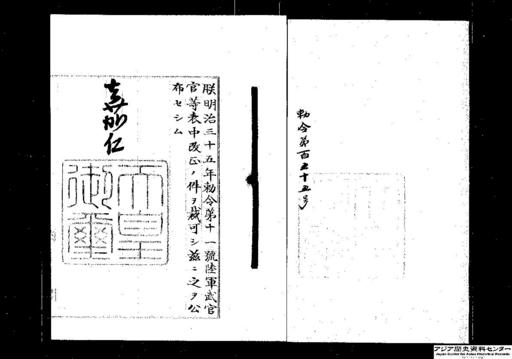 勅令第百五十五号
朕明治三十五年勅令第十一號陸軍武官
官等表中改正ノ件ヲ裁可シ茲ニ之ヲ公
布セシム
嘉仁
天皇
御璽
アジア歴史資料センター
Japan Center for Asian Historical Records